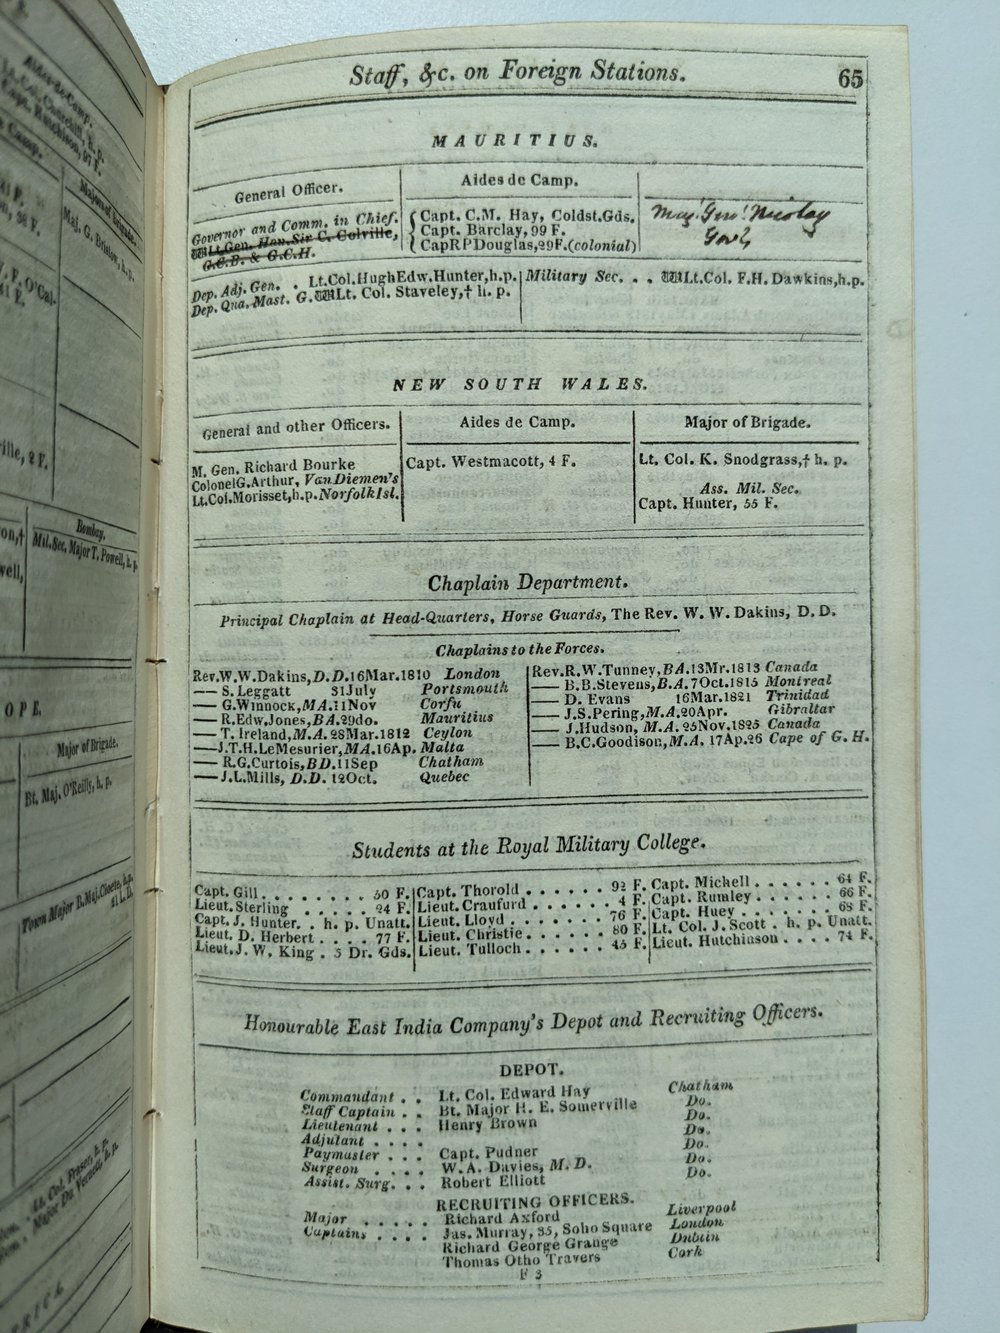 Staff, &c. on Foreign Stations. 65
MAURITIUS.
General Officer.
Governor and Comm. in Chief.
Lt.Gen. Hon. Sir C. Colville,
G.C.B. & G.C.H.
Aides de Camp.
Capt. C.M. Hay, Coldst.Gds.
Capt. Barclay, 99 F.
CapRPDouglas,29F.(colonial)
Maj. Genl. Nicolay
Dep. Adj. Gen. . Lt.Col.HughEdw.Hunter,h.p.
Dep. Qua. Mast. G. Lt. Col. Staveley,† h. p.
Military Sec. . . Lt.Col. F.H. Dawkins,h.p.
NEW SOUTH WALES.
General and other Officers.
M. Gen. Richard Bourke
ColonelG.Arthur, VanDiemen's
Lt.Col.Morisset,h.p.NorfolkIsl.
Aides de Camp.
Capt. Westmacott, 4 F.
Major of Brigade.
Lt. Col. K. Snodgrass,† h. p.
Ass. Mil. Sec.
Capt. Hunter, 55 F.
Chaplain Department.
Principal Chaplain at Head-Quarters, Horse Guards, The Rev. W. W. Dakins, D. D.
Chaplains to the Forces.
Rev.W.W.Dakins,D.D.16Mar.1810 London
— S. Leggatt 31July Portsmouth
— G.Winnock,MA.11Nov Corfu
— R.Edw,Jones,BA.29do. Mauritius
— T. Ireland,M.A. 28Mar.1812 Ceylon
—J.T.H.LeMesurier,MA.16Ap. Malta
— R.G.Curtois,BD.11Sep Chatham
—J.L.Mills, D.D. 12Oct. Quebec
Rev.R.W.Tunney,BA.13Mr.1813 Canada
— B.B.Stevens,B.A.7Oct.1815 Montreal
— D. Evans 16Mar.1821 Trinidad
— J.S.Pering,M.A.20Apr. Gibraltar
— J.Hudson, M.A. 25Nov.1825 Canada
— B.C.Goodison,M.A. 17Ap.26 Cape of G. H.
Students at the Royal Military College.
Capt. Gill . . . . . . . . 50 F.
Lieut. Sterling . . . . . 24 F.
Capt. J. Hunter. . h. p. Unatt.
Lieut. D. Herbert . . . . 77 F.
Lieut. J. W. King . 5 Dr. Gds.
Capt. Thorold . . . . . . 92 F.
Lieut. Craufurd . . . . . 4 F.
Lieut. Lloyd . . . . . . 76 F.
Lieut. Christie . . . . . . 80 F.
Lieut. Tulloch . . . . . . 45 F.
Capt. Michell . . . . . . 64 F.
Capt. Rumley . . . . . . 66 F.
Capt. Huey . . . . . . . 68 F.
Lt. Col. J. Scott . h. p. Unatt.
Lieut. Hutchinson . . . . 74 F.
Honourable East India Company's Depot and Recruiting Officers.
DEPOT.
Commandant . . Lt. Col. Edward Hay Chatham
Staff Captain . . Bt. Major H. E. Somerville Do.
Lieutenant . . . Henry Brown Do.
Adjutant . . . . Do.
Paymaster . . . Capt. Pudner Do.
Surgeon . . . . W. A. Davies, M. D. Do.
Assist. Surg. . . Robert Elliott Do.
RECRUITING OFFICERS.
Major . . . . . Richard Axford Liverpool
Captains . . . . Jas. Murray, 35, Soho Square London
Richard George Grange Dublin
Thomas Otho Travers Cork
F 3
Aides-de-Camp.
Majors of Brigade.
Maj. G. Bristow, h. p.
Bombay.
Mil.Sec. Major T. Powell, h. p.
OPE.
Major of Brigade.
Bt. Maj. O'Reilly, h. p.
Town Major B.Maj.Cloete, h.p.
21 L.D.
Lt. Col. Fraser, h. p.
Major Du Vernet, h. p.